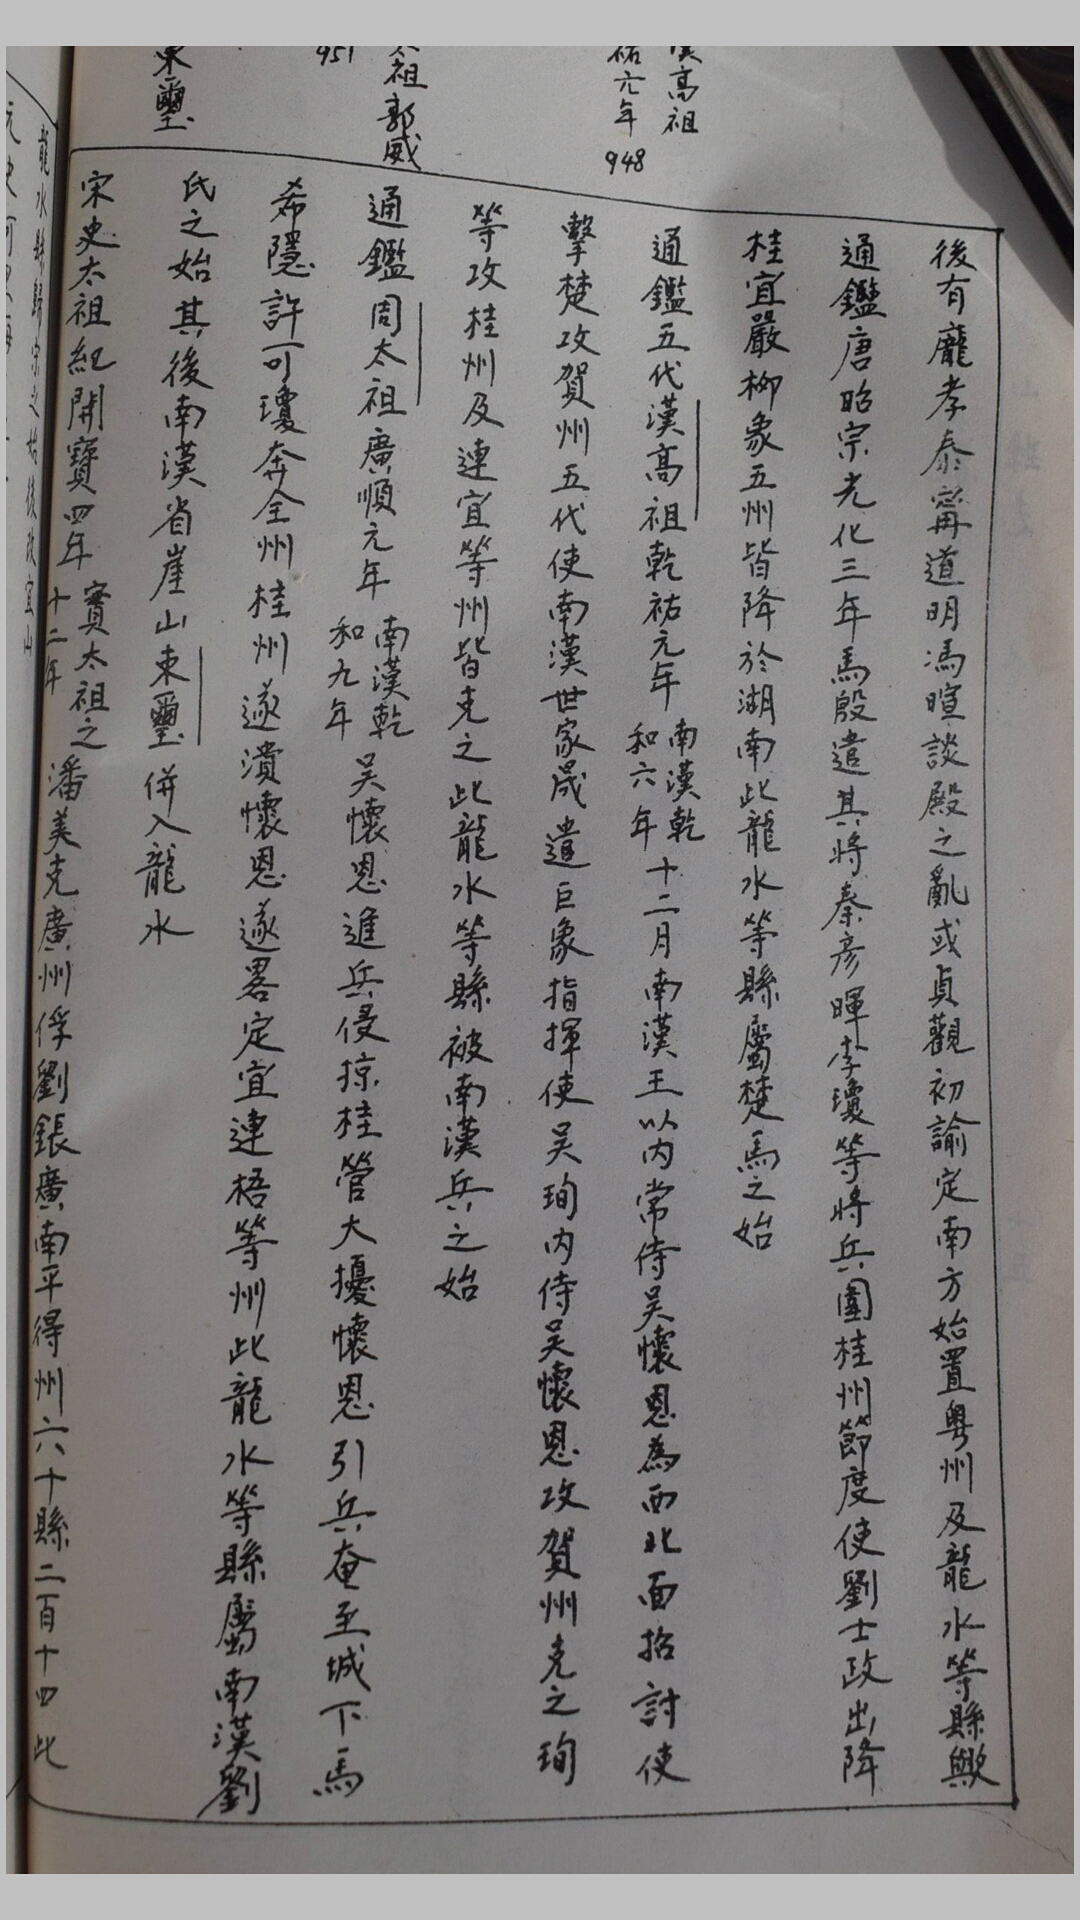 漢高祖
祐元年
948
太祖郭威
951
東璽
後有龐孝泰甯道明馮暄談殿之亂或貞觀初諭定南方始置粵州及龍水等縣歟
通鑑唐昭宗光化三年馬殷遣其將秦彥暉李瓊等將兵圍桂州節度使劉士政出降
桂宜嚴柳象五州皆降於湖南此龍水等縣屬楚馬之始
通鑑五代漢高祖乾祐元年南漢乾和六年十二月南漢王以內常侍吳懷恩為西北面招討使
擊楚攻賀州五代使南漢世家晟遣巨象指揮使吳珣內侍吳懷恩攻賀州克之珣
等攻桂州及連宜等州皆克之此龍水等縣被南漢兵之始
通鑑周太祖廣順元年南漢乾和九年吳懷恩進兵侵掠桂管大擾懷恩引兵奄至城下馬
希隱許可瓊奔全州桂州遂潰懷恩遂畧定宜連梧等州此龍水等縣屬南漢劉
氏之始其後南漢省崖山東璽併入龍水
宋史太祖紀開寶四年實太祖之十二年潘美克廣州俘劉鋹廣南平得州六十縣二百十四此
龍水縣歸宋之始後改宜山